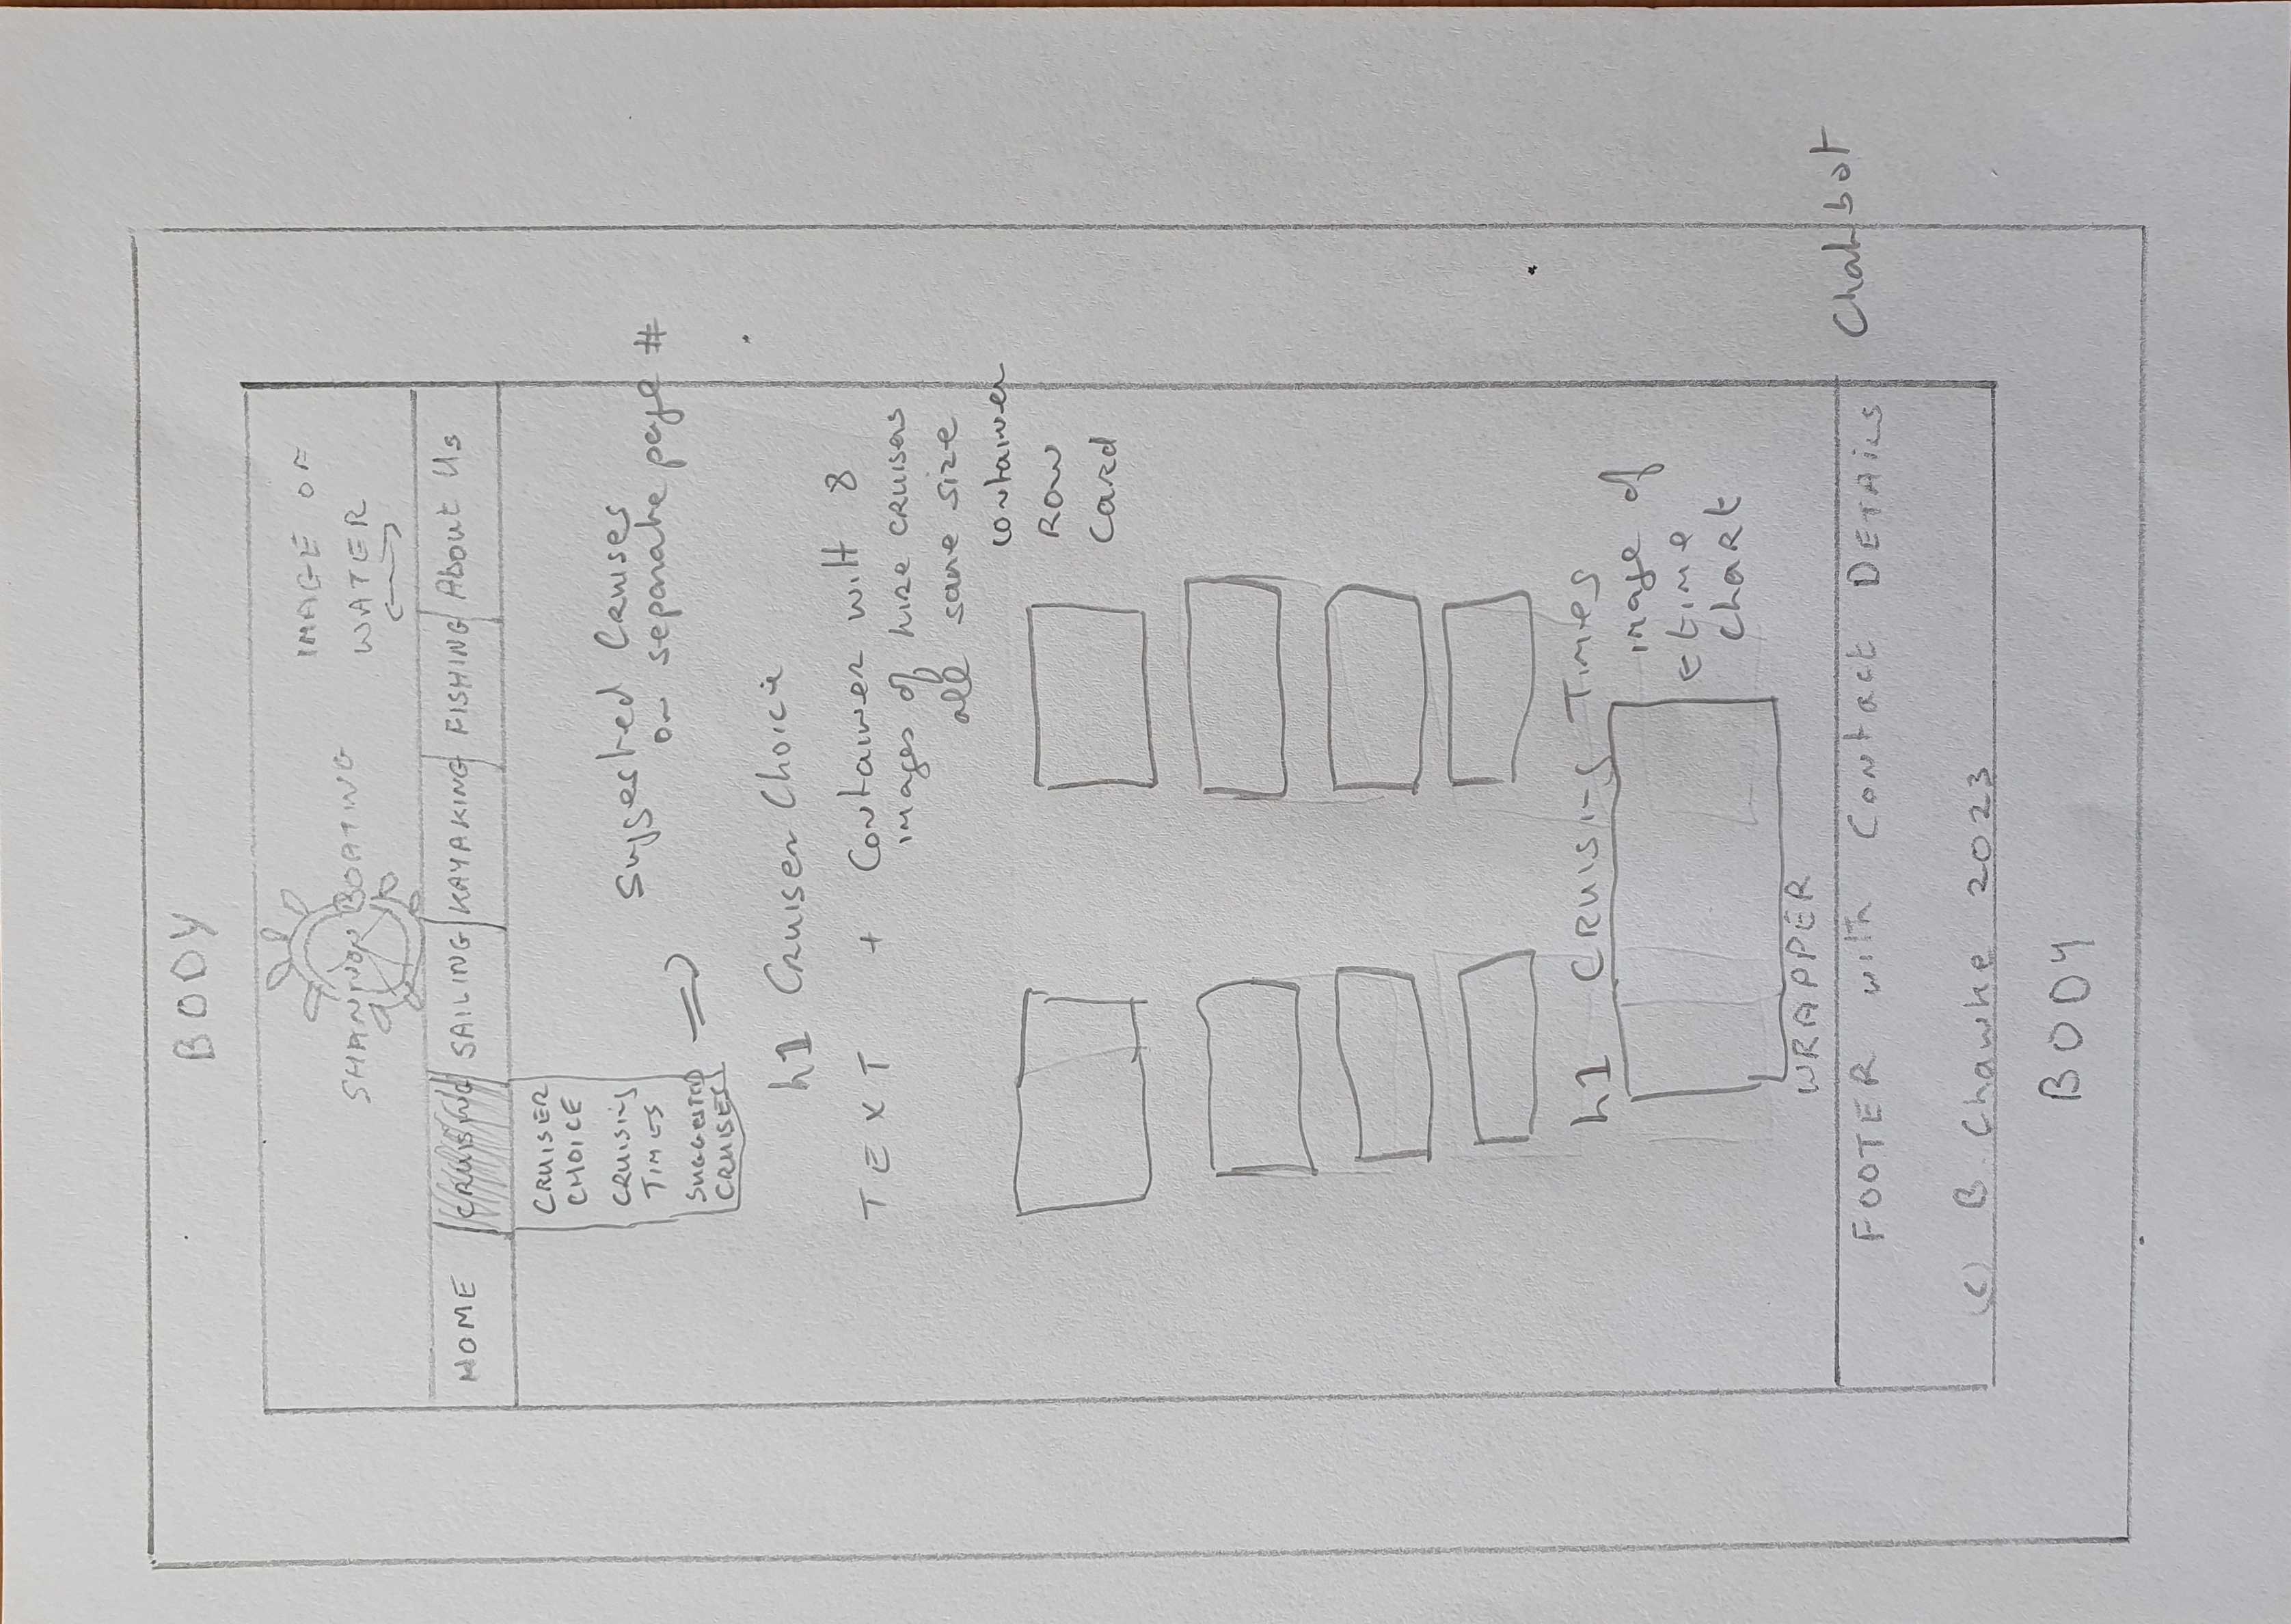 BODY
SHANNON BOATING
IMAGE OF
WATER
HOME CRUISING SAILING KAYAKING FISHING About Us
CRUISER
CHOICE
CRUISING
TIMES
SUGGESTED
CRUISES
Suggested Cruises
on separate page #
h1 Cruiser Choice
TEXT + Container with 8
images of hire cruisers
all same size
container
Row
Card
h1 Cruising Times
image of
time
chart
WRAPPER
FOOTER with Contact DETAILS
Chatbot
(c) B. Chawke 2023
BODY